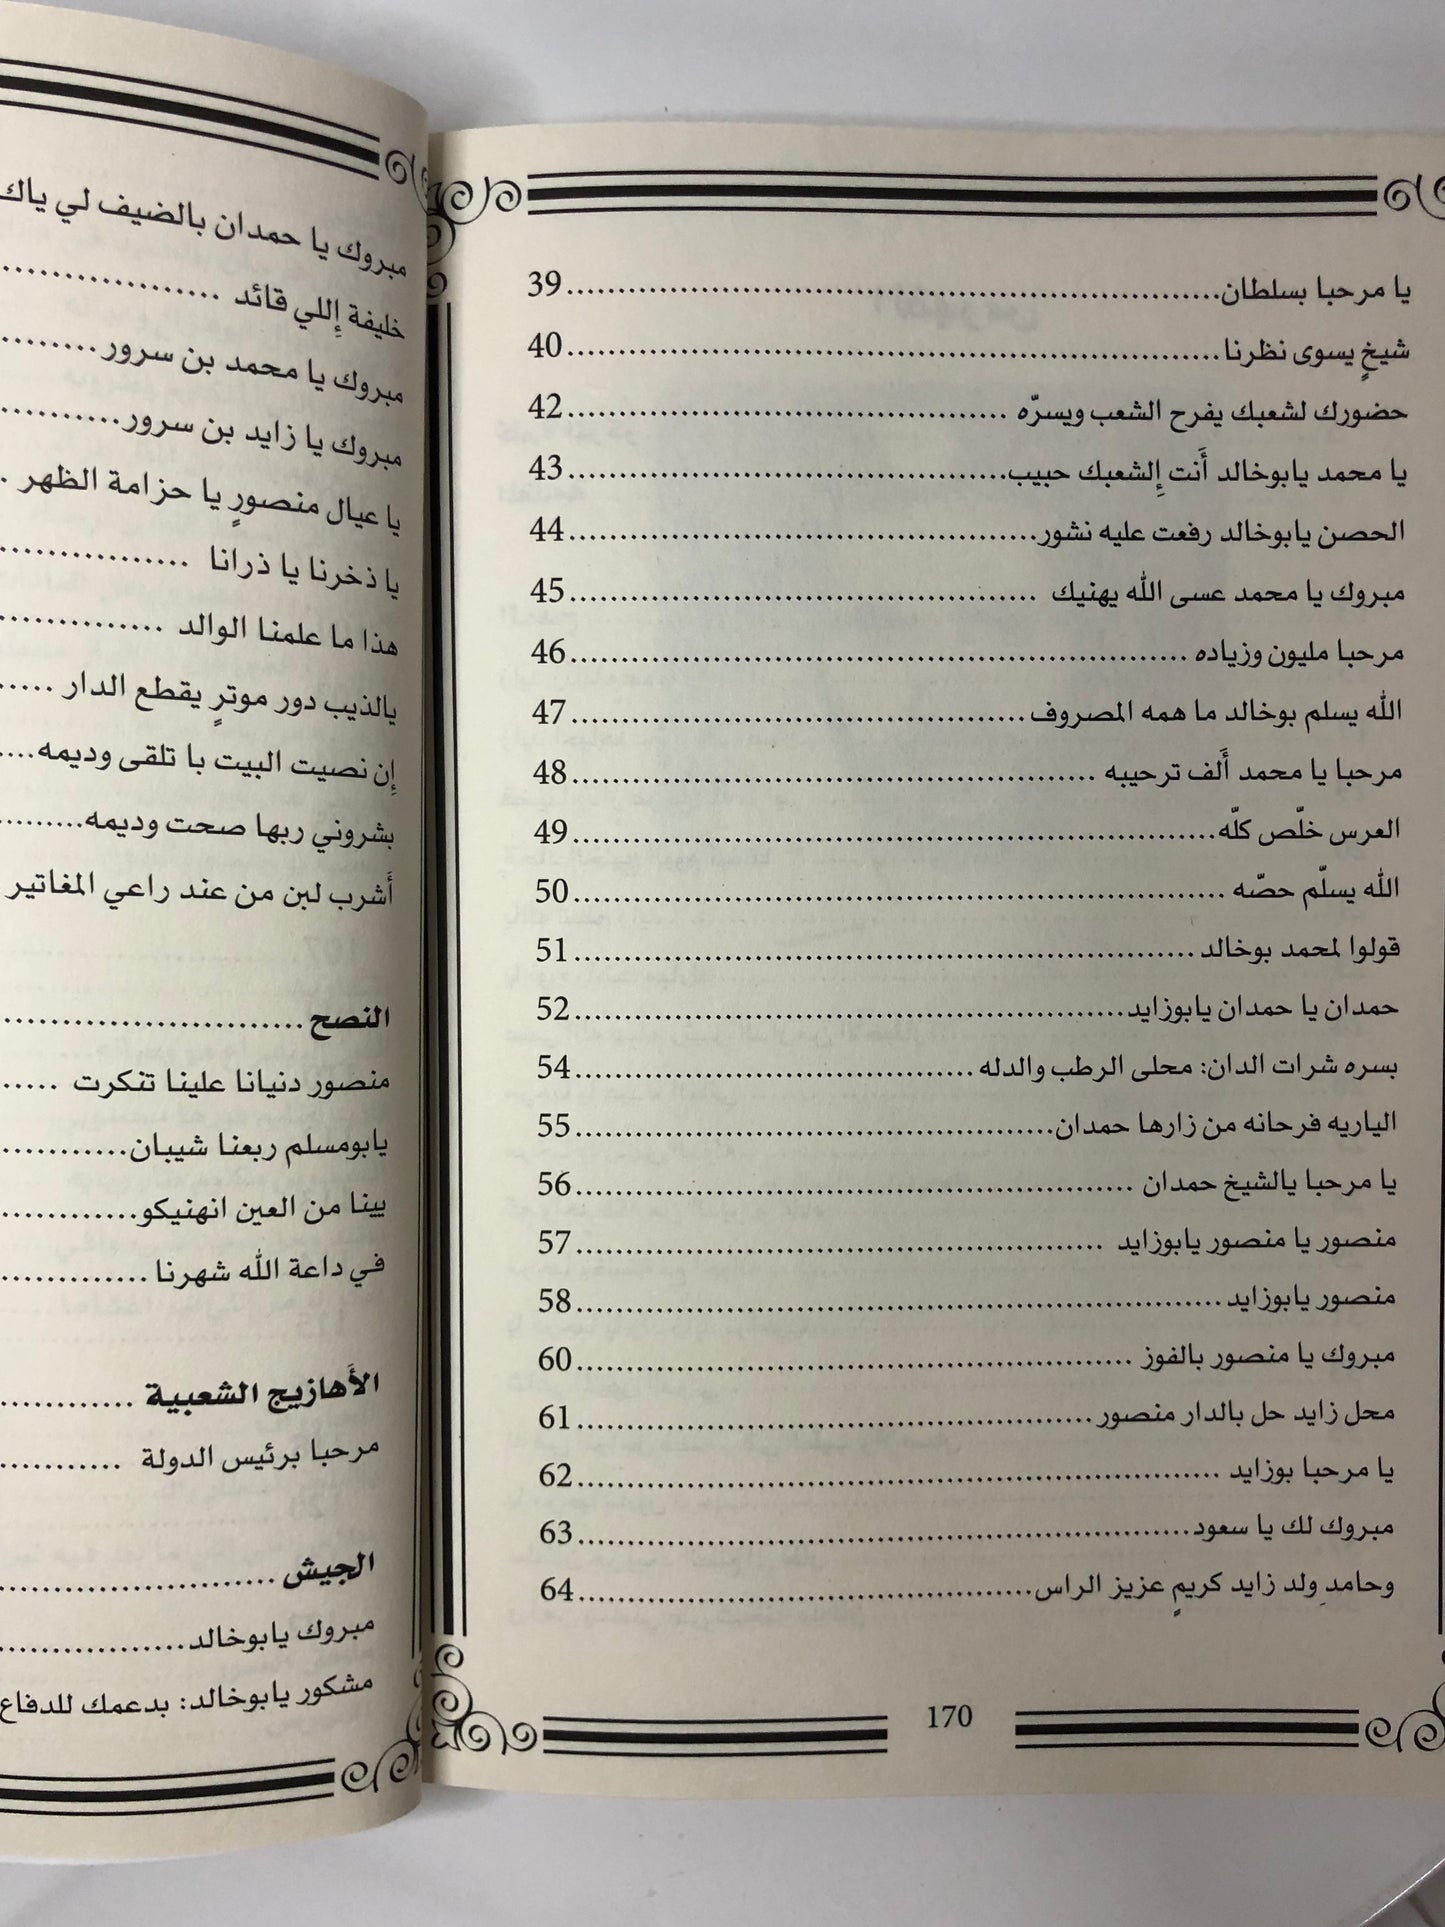 يا مرحبا بسلطان............................................................39
شيخٍ يسوى نظرنا............................................................40
حضورك لشعبك يفرح الشعب ويسرّه ........................................42
يا محمد يابوخالد أَنت إِلشعبك حبيب........................................43
الحصن يابوخالد رفعت عليه نشور...........................................44
مبروك يا محمد عسى الله يهنيك ...........................................45
مرحبا مليون وزياده .........................................................46
الله يسلم بوخالد ما همه المصروف...........................................47
مرحبا يا محمد أَلف ترحيبه ..................................................48
العرس خلّص كلّه............................................................49
الله يسلّم حصّه ............................................................50
قولوا لمحمد بوخالد .........................................................51
حمدان يا حمدان يابوزايد...................................................52
بسره شرات الدان: محلى الرطب والدله ......................................54
الياريه فرحانه من زارها حمدان..............................................55
يا مرحبا يالشيخ حمدان ....................................................56
منصور يا منصور يابوزايد ..................................................57
منصور يابوزايد............................................................58
مبروك يا منصور بالفوز ....................................................60
محل زايد حل بالدار منصور................................................61
يا مرحبا بوزايد ............................................................62
مبروك لك يا سعود.........................................................63
وحامدِ ولد زايد كريمٍ عزيز الراس...........................................64
170
مبروك يا حمدان بالضيف لي ياك
خليفة إِللي قائد ..................
مبروك يا محمد بن سرور.........
مبروك يا زايد بن سرور..........
يا عيال منصورٍ يا حزامة الظهر .
يا ذخرنا يا ذرانا ................
هذا ما علمنا الوالد ..............
يالذيب دور موترٍ يقطع الدار .....
إِن نصيت البيت با تلقى وديمه....
بشروني ربها صحت وديمه.........
أَشرب لبن من عند راعي المغاتير
النصح ..........................
منصور دنيانا علينا تنكرت .....
يابومسلم ربعنا شيبان...........
يينا من العين انهنيكو............
في داعة الله شهرنا .............
الأَهازيج الشعبية ............
مرحبا برئيس الدولة ...........
الجيش .........................
مبروك يابوخالد.................
مشكور يابوخالد: بدعمك للدفاع